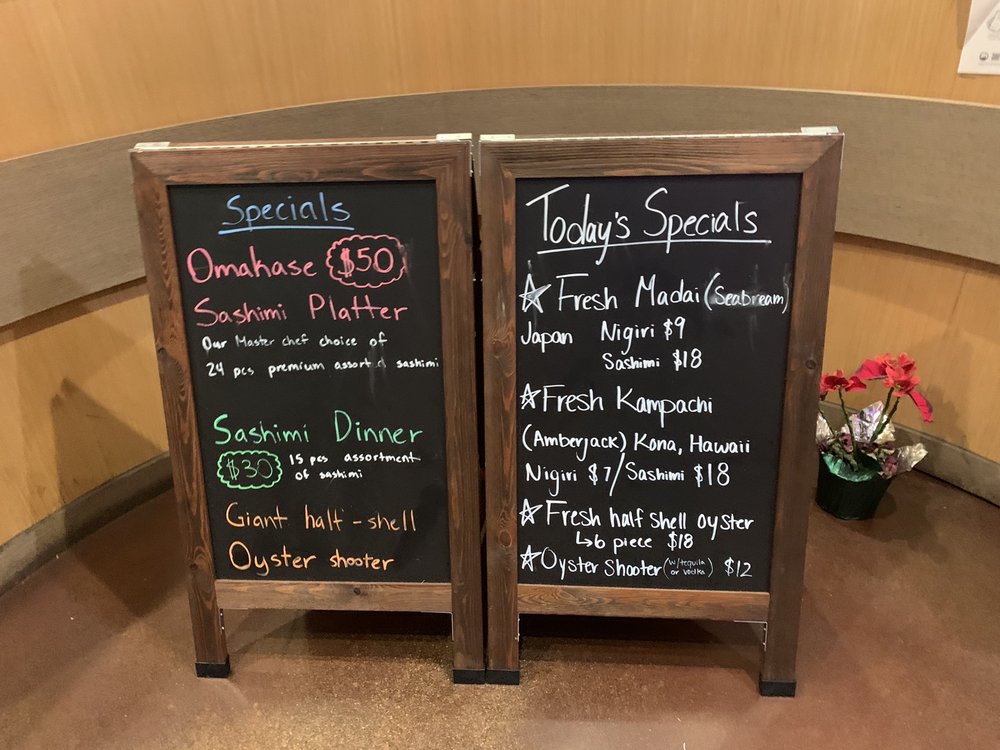 Specials
Omakase $50
Sashimi Platter
Our Master chef choice of
24 pcs premium assorted sashimi
Sashimi Dinner
$30 15 pcs assortment
of sashimi
Giant half-shell
Oyster shooter
Today's Specials
☆ Fresh Madai (Seabream)
Japan Nigiri $9
Sashimi $18
☆ Fresh Kampachi
(Amberjack) Kona, Hawaii
Nigiri $7/Sashimi $18
☆ Fresh half shell oyster
↳ 6 piece $18
☆ Oyster Shooter (w/tequila or vodka) $12